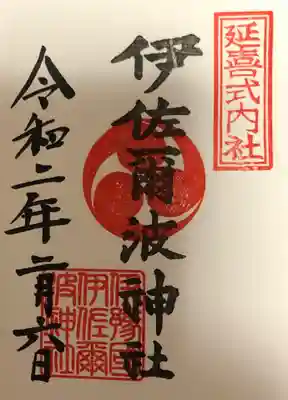 延喜式内社
伊佐爾波神社
令和二年二月六日
伊豫国
伊佐爾
波神社